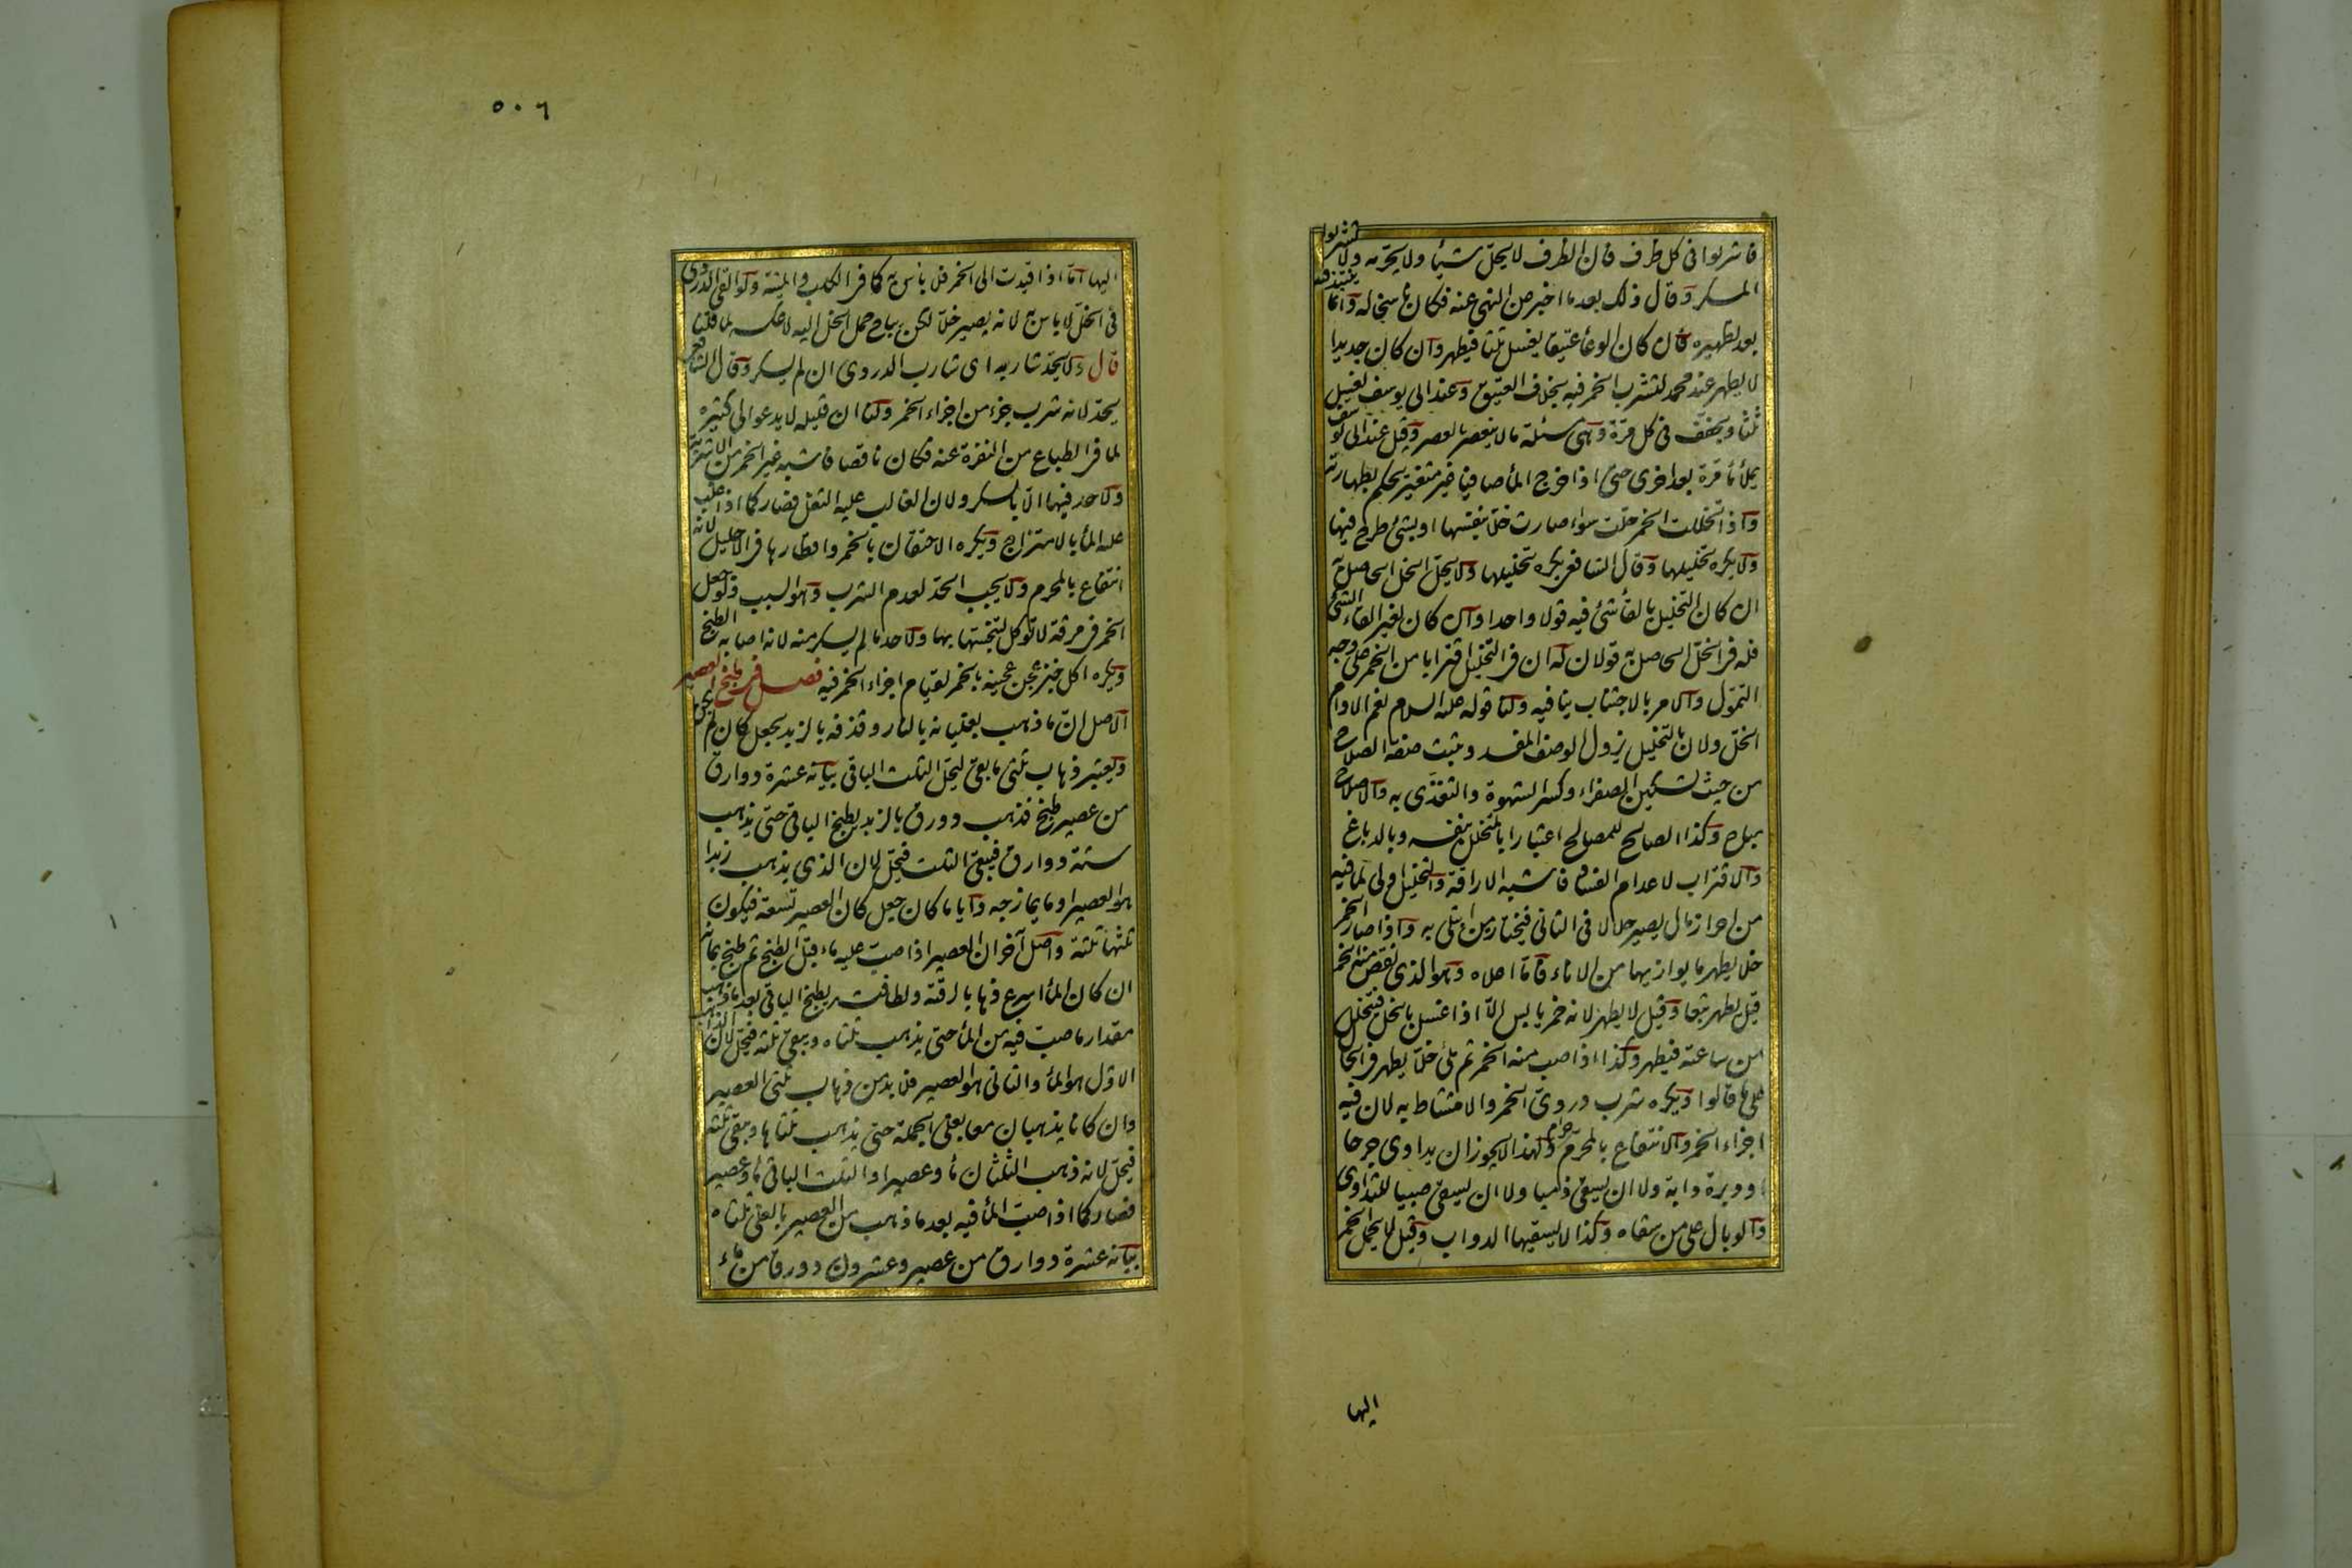 فاشربوا فى كل ظرف فان الظرف لا يحلّ شيئا ولا يحرّمه ولا تشربوا
المسكر وقال ذلك بعد ما اخبر عن النهى عنه فكان ناسخا له وانما ينتبذ فيه
بعد تطهيره فان كان الوعاء عتيقا يغسل ثلثا فيطهر وان كان جديدا
لا يطهر عند محمد لتشرب الخمر فيه بخلاف العتيق وعند ابى يوسف يغسل
ثلثا ويجفف فى كل مرّة وهى مسئلة ما لا ينعصر بالعصر وقيل عند ابى يوسف
يملأ ماء مرة بعد اخرى حتى اذا خرج الماء صافيا غير متغير يحكم بطهارته
واذا تخللت الخمر حلّت سواء صارت خلّا بنفسها او بشئ طرح فيها
ولا يكره تخليلها وقال الشافعى يكره تخليلها ولا يحلّ الخل الحاصل به
ان كان التخليل بالقاء شئ فيه قولا واحدا وان كان لغير القاء الشئ
فله فى الخلّ الحاصل به قولان له ان فى التخليل اقترابا من الخمر على وجه
التموّل والامر بالاجتناب ينافيه ولنا قوله عليه السلام نعم الادام
الخلّ ولان بالتخليل يزول الوصف المفسد ويثبت صفة الصلاح
من حيث تسكين الصفراء وكسر الشهوة والتغذّى به والاصلاح
مباح وكذا الصالح للمصالح اعتبارا بالمتخلل بنفسه وبالدباغ
والاقتراب لاعدام الفساد فاشبه الاراقة والتخليل اولى لما فيه
من احراز مال يصير حلالا فى الثانى فيختاره من ابتلى به واذا صار الخمر
خلا يطهر ما يوازيها من الاناء فاما اعلاه وهو الذى نقص منه الخمر
قيل يطهر تبعا وقيل لا يطهر لانه خمر يابس الّا اذا غسل بالخل فيتخلل
من ساعته فيطهر وكذا اذا صب منه الخمر ثم ملئ خلّا يطهر فى الحال
على ما قالوا ويكره شرب دردىّ الخمر والامتشاط به لان فيه
اجزاء الخمر والانتفاع بالمحرّم حرام ولهذا لا يجوز ان يداوى جرحا
او دبرة دابة ولا ان يسقى ذميا ولا ان يسقى صبيا للتداوى
والوبال على من سقاه وكذا لا يسقيها الدواب وقيل لا يحمل الخمر
اليها
٥٠٦
اليها امّا اذا قيدت الى الخمر فلا بأس به كما فى الكلب والميتة ولو القى الدردى
فى الخلّ لا بأس به لانه يصير خلّا لكن يباح حمل الخل اليه لا عكسه لما قلنا
قال ولا يحدّ شاربه اى شارب الدردى ان لم يسكر وقال الشافعى
يحدّ لانه شرب جزء من اجزاء الخمر ولنا ان قليله لا يدعو الى كثيره
لما فى الطباع من النفرة عنه فكان ناقصا فاشبه غير الخمر من الاشربة
ولا حد فيها الّا بالسكر ولان الغالب عليه الثفل فصار كما اذا غلب
عليه الماء بالامتزاج ويكره الاحتقان بالخمر واقطارها فى الاحليل لانه
انتفاع بالمحرم ولا يجب الحدّ لعدم الشرب وهو السبب ولو جعل
الخمر فى مرقة لا تؤكل لتنجسها بها ولا حد ما لم يسكر منه لانه اصابه الطبخ
ويكره اكل خبز عجن عجينه بالخمر لقيام اجزاء الخمر فيه فصل فى طبخ العصير
الاصل ان ما ذهب بغليانه بالنار وقذفه بالزبد يجعل كان لم يكن
ويعتبر ذهاب ثلثى ما بقى ليحلّ الثلث الباقى بيانه عشرة دوارق
من عصير طبخ فذهب دورق بالزبد يطبخ الباقى حتى يذهب
ستة دوارق فيبقى الثلث فيحل لان الذى يذهب زبدا
هو العصير او ما يمازجه وايا ما كان جعل كان العصير تسعة فيكون
ثلثها ثلثة واصل آخر ان العصير اذا صبّ عليه ماء قبل الطبخ ثم طبخ بمائه
ان كان الماء اسرع ذهابا لرقته ولطافته يطبخ الباقى بعد ما ذهب
مقدار ما صبّ فيه من الماء حتى يذهب ثلثاه ويبقى ثلثه فيحل لان الذاهب
الاوّل هو الماء والثانى هو العصير فلا بد من ذهاب ثلثى العصير
وان كانا يذهبان معا يغلى الجملة حتى يذهب ثلثاها ويبقى ثلثه
فيحلّ لانه ذهب الثلثان ماء وعصيرا والثلث الباقى ماء وعصير
فصار كما اذا صبّ الماء فيه بعد ما ذهب من العصير بالغلى ثلثاه
بيانه عشرة دوارق من عصير وعشرون دورقا من ماء